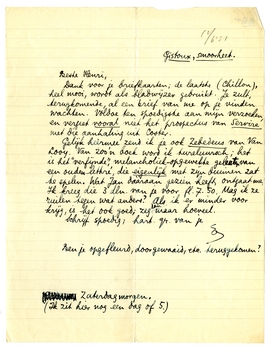 Gistoux, smoorheet.
Beste Henri,
Dank voor je briefkaarten; de laatste (Chillon),
heel mooi, wordt als bladwijzer gebruikt. Je zult,
terugkomende, al een brief van me op je vinden
wachten. Voldoe ten spoedigste aan mijn verzoeken
en vergeet vooral niet het prospectus van Servire
met die aanhaling uit Coster.
Gelijk hiermee zend ik je ook Zebedeus van Van
Looy. Van zoo'n boek word ik tureluursch, het
is het "verfijnde", melancholiek-opgewekte
van een ouden
te spelen. Wat Jan daaraan gezien heeft, ontgaat me.
Ik kreeg die 3 dln. van je voor fl. 7.50. Mag ik ze
ruilen tegen wat anders? Als ik er minder voor
krijg, is het ook goed; zeg maar hoeveel.
Schrijf spoedig; hart. gr. van je
Ben je opgefleurd, doorgewaaid, etc. teruggekomen?
Zaterdagmorgen.
(Ik zit hier nog een dag of 5.)